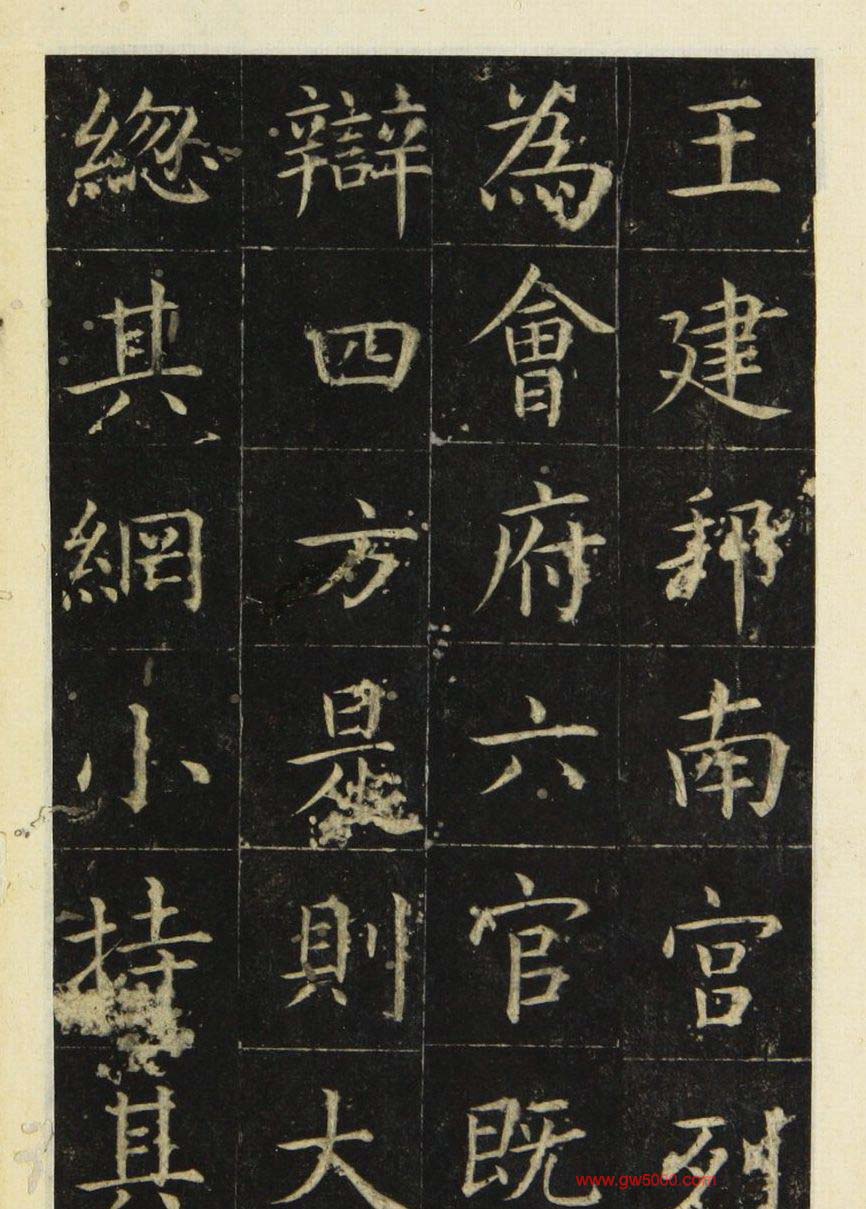 王建邦南宫列
為會府六官既
辯四方是則大
緫其網小持其
www.gw5000.com